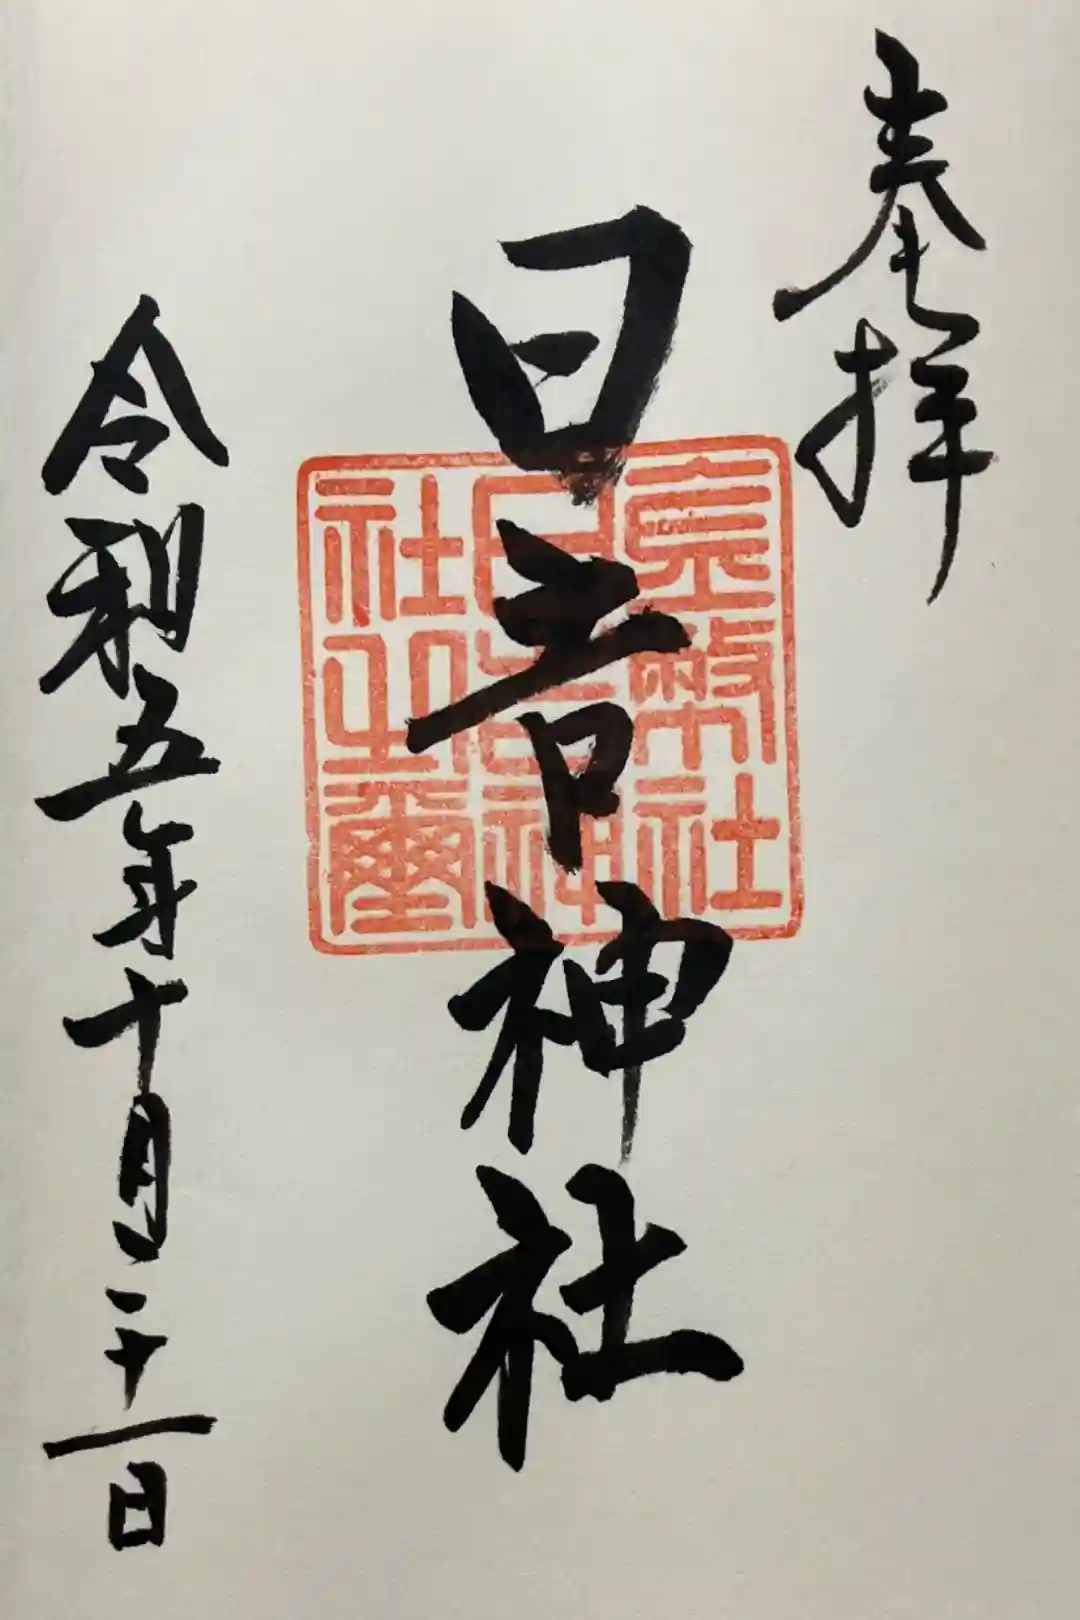 奉拝
日吉神社
幣社
日吉神
社之璽
令和五年十月二十一日